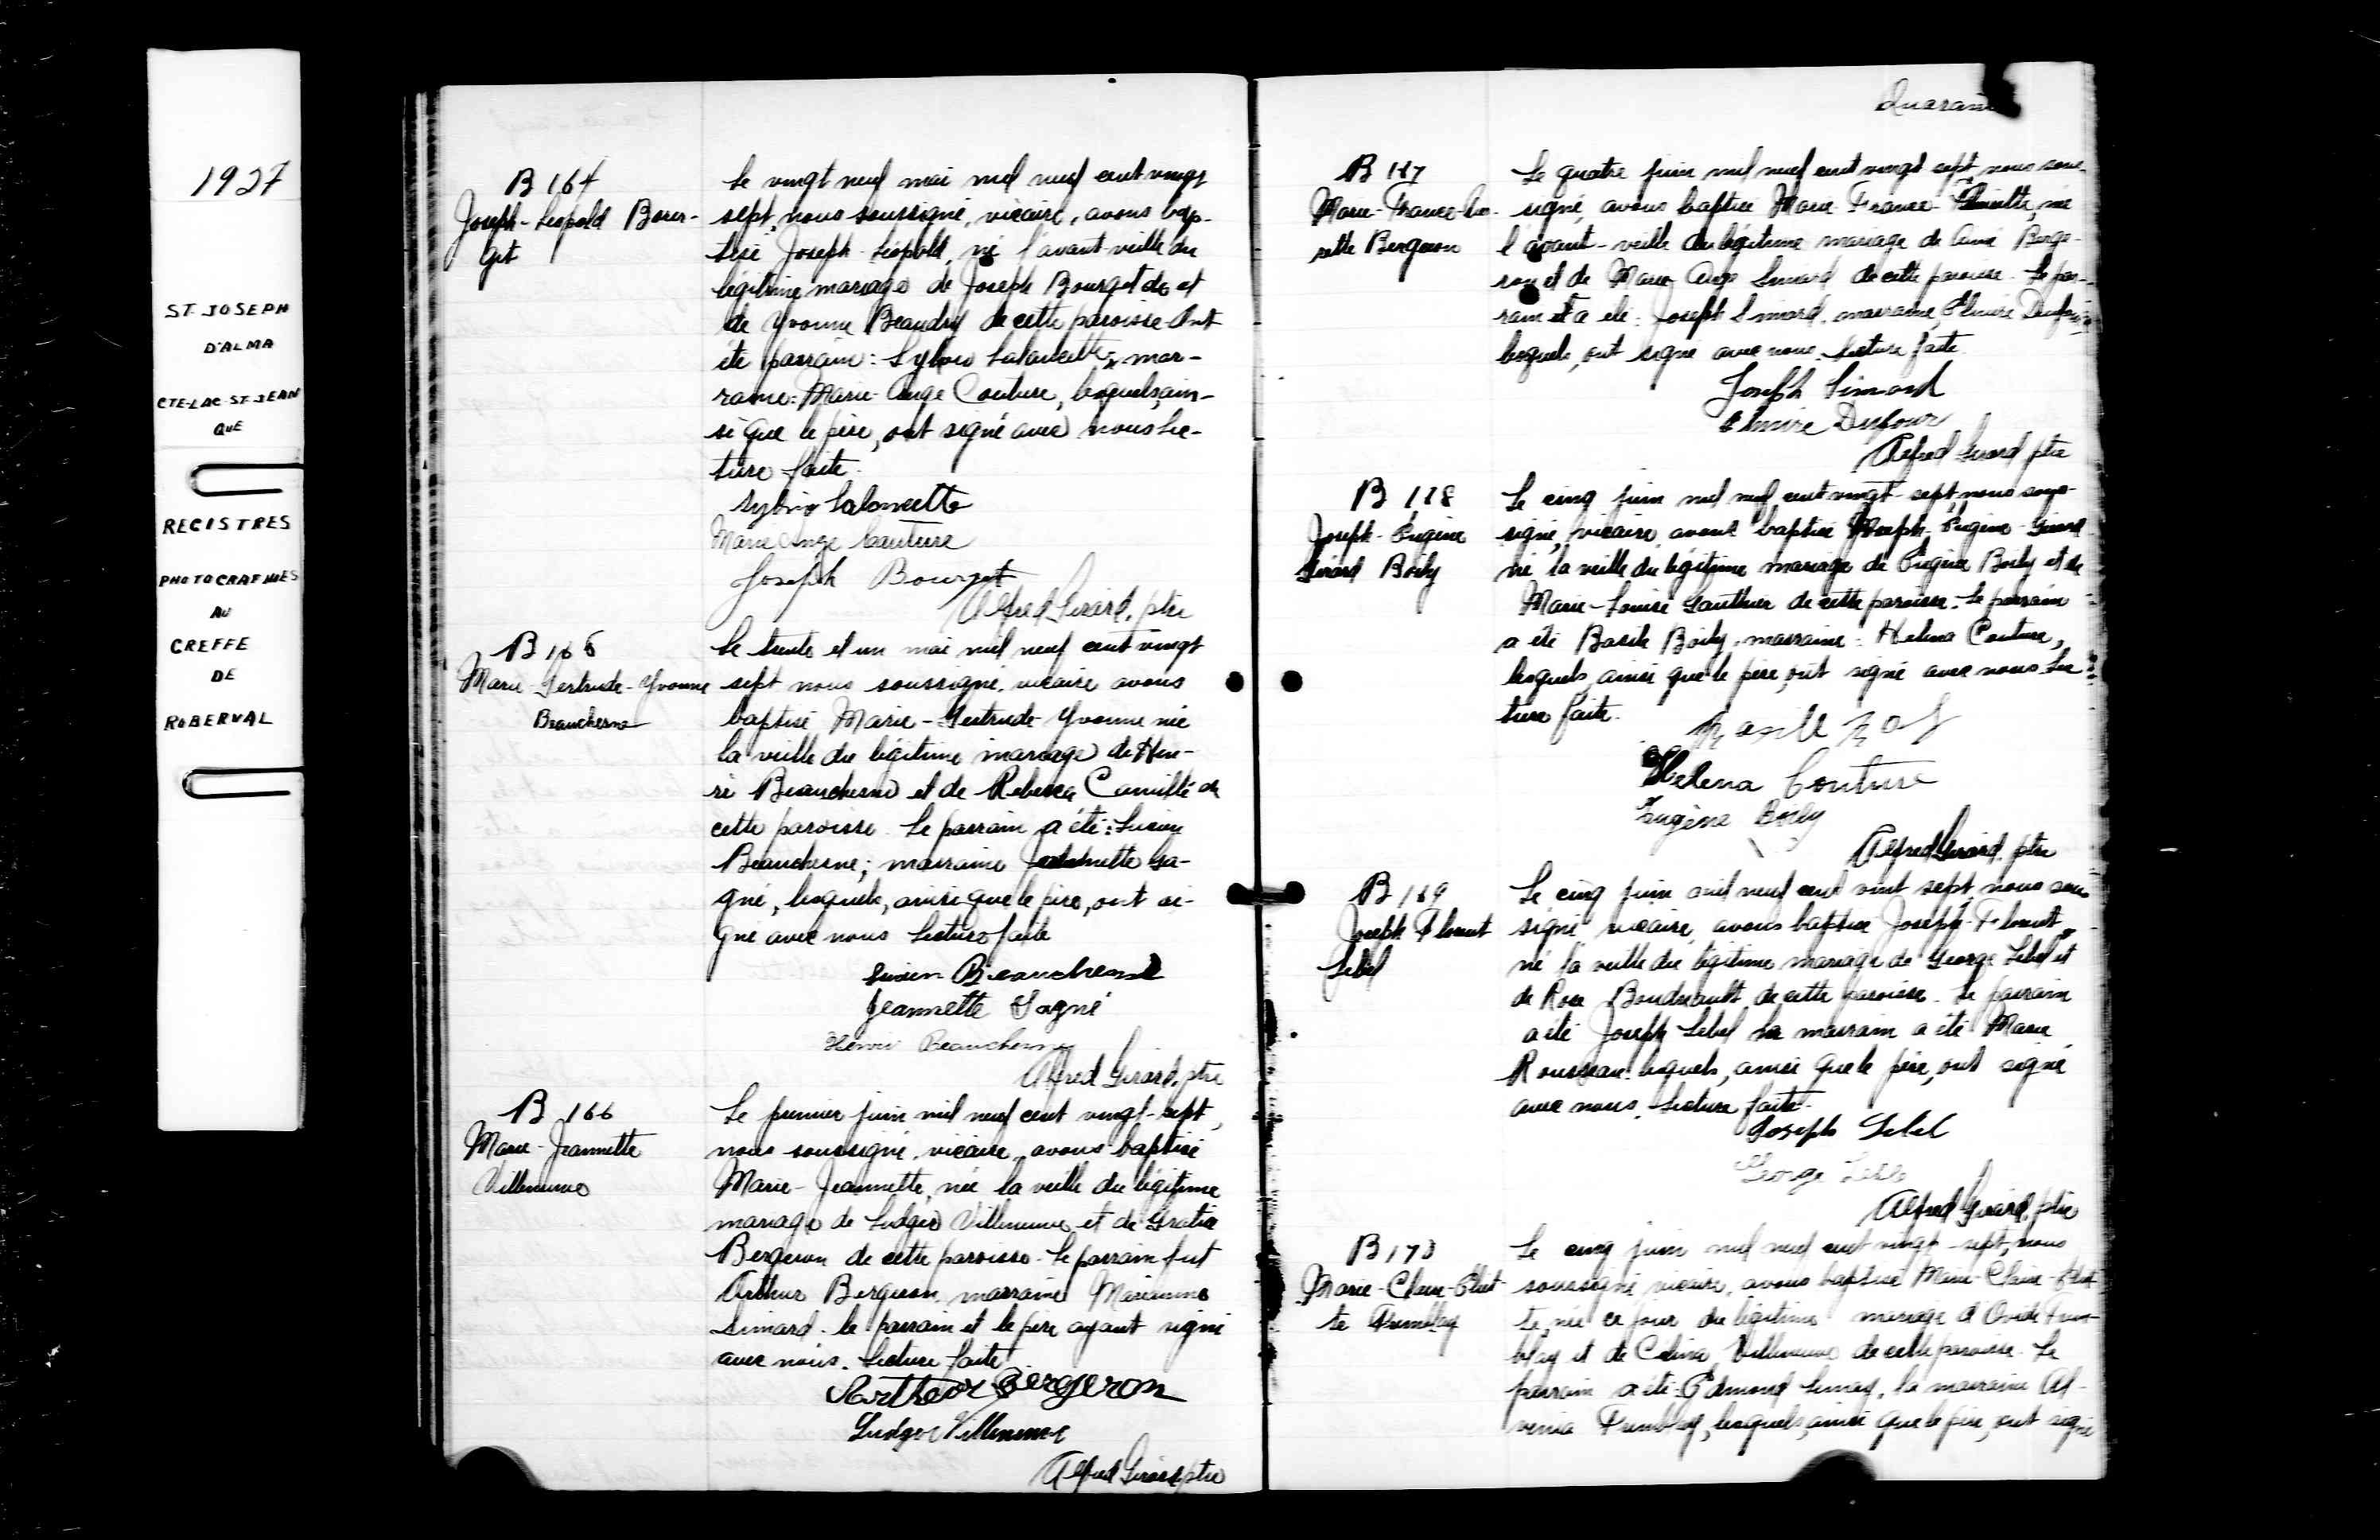 1927
ST-JOSEPH
D'ALMA
CTE-LAC-ST-JEAN
QUE
REGISTRES
PHOTOGRAPHIES
AU
GREFFE
DE
ROBERVAL
B 164
Joseph-Léopold Bour-
get
Le vingt neuf mai mil neuf cent vingt
sept, nous soussigné, vicaire, avons bap-
tisé Joseph-Léopold, né l'avant veille du
légitime mariage de Joseph Bourget de et
de Yvonne Beaudry de cette paroisse. Ont
été parrain: Sylvio Lalancette, mar-
raine: Marie-Ange Couture, lesquels, ain-
si que le père, ont signé avec nous. Lec-
ture faite.
Sylvio Lalancette
Marie Ange Couture
Joseph Bourget
Alfred Girard, ptre
B 165
Marie-Gertrude-Yvonne
Beauchesne
Le trente et un mai mil neuf cent vingt
sept nous soussigné, vicaire avons
baptisé Marie-Gertrude-Yvonne née
la veille du légitime mariage de Hen-
ri Beauchesne et de Rebecca Camille de
cette paroisse. Le parrain a été: Lucien
Beauchesne; marraine Jeannette Ga-
gné, lesquels, ainsi que le père, ont si-
gné avec nous Lecture faite
Lucien Beauchesne
Jeannette Gagné
Henri Beauchesne
Alfred Girard, ptre
B 166
Marie-Jeannette
Villeneuve
Le premier juin mil neuf cent vingt-sept,
nous soussigné, vicaire, avons baptisé
Marie-Jeannette, née la veille du légitime
mariage de Ludger Villeneuve et de Gratia
Bergeron de cette paroisse. Le parrain fut
Arthur Bergeron, marraine Marianne
Simard. le parrain et le père ayant signé
avec nous. Lecture faite.
Arthur Bergeron
Ludger Villeneuve
Alfred Girard ptre
B 167
Marie-France-
sette Bergeron
Le quatre juin mil neuf cent vingt sept, nous sous-
signé, avons baptisé Marie-France- née
l'avant-veille du légitime mariage de Aimé Berge-
ron et de Marie Ange Simard de cette paroisse. Le par-
rain et a été: Joseph Simard, marraine, Elmire Dufour,
lesquels, ont signé avec nous. Lecture faite.
Joseph Simard
Elmire Dufour
Alfred Girard ptre
B 168
Joseph-Eugène
Girard Boily
Le cinq juin mil neuf cent vingt-sept, nous sous-
signé, vicaire, avons baptisé Joseph-Eugène-Girard
né la veille du légitime mariage de Eugène Boily et de
Marie-Louise Gauthier de cette paroisse. Le parrain
a été Basile Boily, marraine: Helena Couture,
lesquels, ainsi que le père, ont signé avec nous. Lec-
ture faite.
Helena Couture
Eugène Boily
Alfred Girard, ptre
B 169
Joseph Florent
Lebel
Le cinq juin mil neuf cent vint sept, nous sous-
signé vicaire, avons baptisé Joseph-Florent
né la veille du légitime mariage de George Lebel et
de Rose Boudreault, de cette paroisse. Le parrain
a été Joseph Lebel la marrain a été Marie
Rousseau lesquels, ainsi que le père, ont signé
avec nous. Lecture faite.
Joseph Lebel
George Lebel
Alfred Girard, ptre
B 170
Marie-Claire-
te Tremblay
Le cinq juin mil neuf cent vingt-sept, nous
soussigné vicaire, avons baptisé Marie-Claire-
te, née ce jour du légitime mariage d'Ovide Trem-
blay et de Célina Villeneuve de cette paroisse. Le
parrain a été: Edmond Lemay, la marraine Al-
vina Tremblay, lesquels, ainsi que le père, ont signé